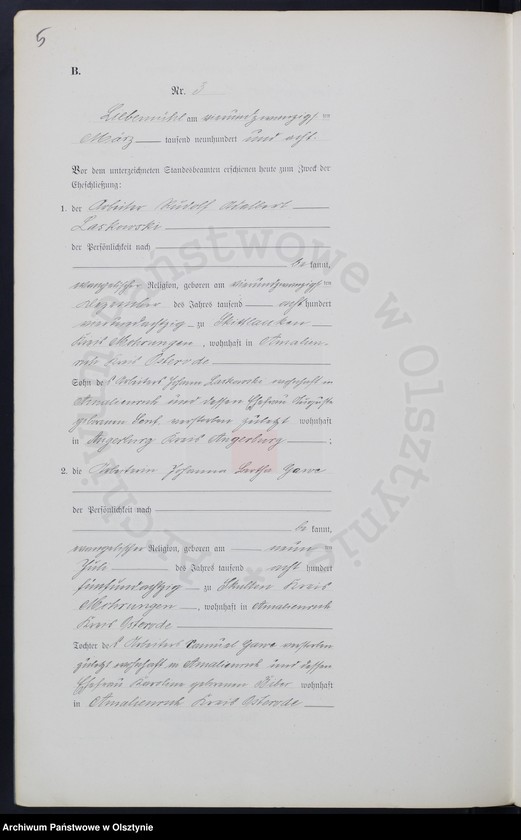 5
B.
Nr. 3
Liebemühl am vierundzwanzigsten
März tausend neunhundert und acht.
Vor dem unterzeichneten Standesbeamten erschienen heute zum Zweck der
Eheschließung:
1. der Arbeiter Rudolf
Laskowski
der Persönlichkeit nach
be kannt,
evangelischer Religion, geboren am vierundzwanzigsten
Dezember des Jahres tausend acht hundert
zu
Kreis Mohrungen, wohnhaft in Amalien-
ruh Kreis Osterode
Sohn des Arbeiters Johann Laskowski wohnhaft in
Amalienruh und dessen Ehefrau Auguste
geborenen verstorben zuletzt wohnhaft
in Angerburg Kreis Angerburg ;
2. die Johanna Bertha Gawe
der Persönlichkeit nach
be kannt,
evangelischer Religion, geboren am neun ten
Juli des Jahres tausend acht hundert
fünfundachtzig zu Kreis
Mohrungen, wohnhaft in Amalienruh
Kreis Osterode
Tochter des Arbeiters Samuel Gawe verstorben
zuletzt wohnhaft in Amalienruh und dessen
Ehefrau geborenen wohnhaft
in Amalienruh Kreis Osterode
Archiwum Państwowe w Olsztynie
Archiwum Państwowe w Olsztynie